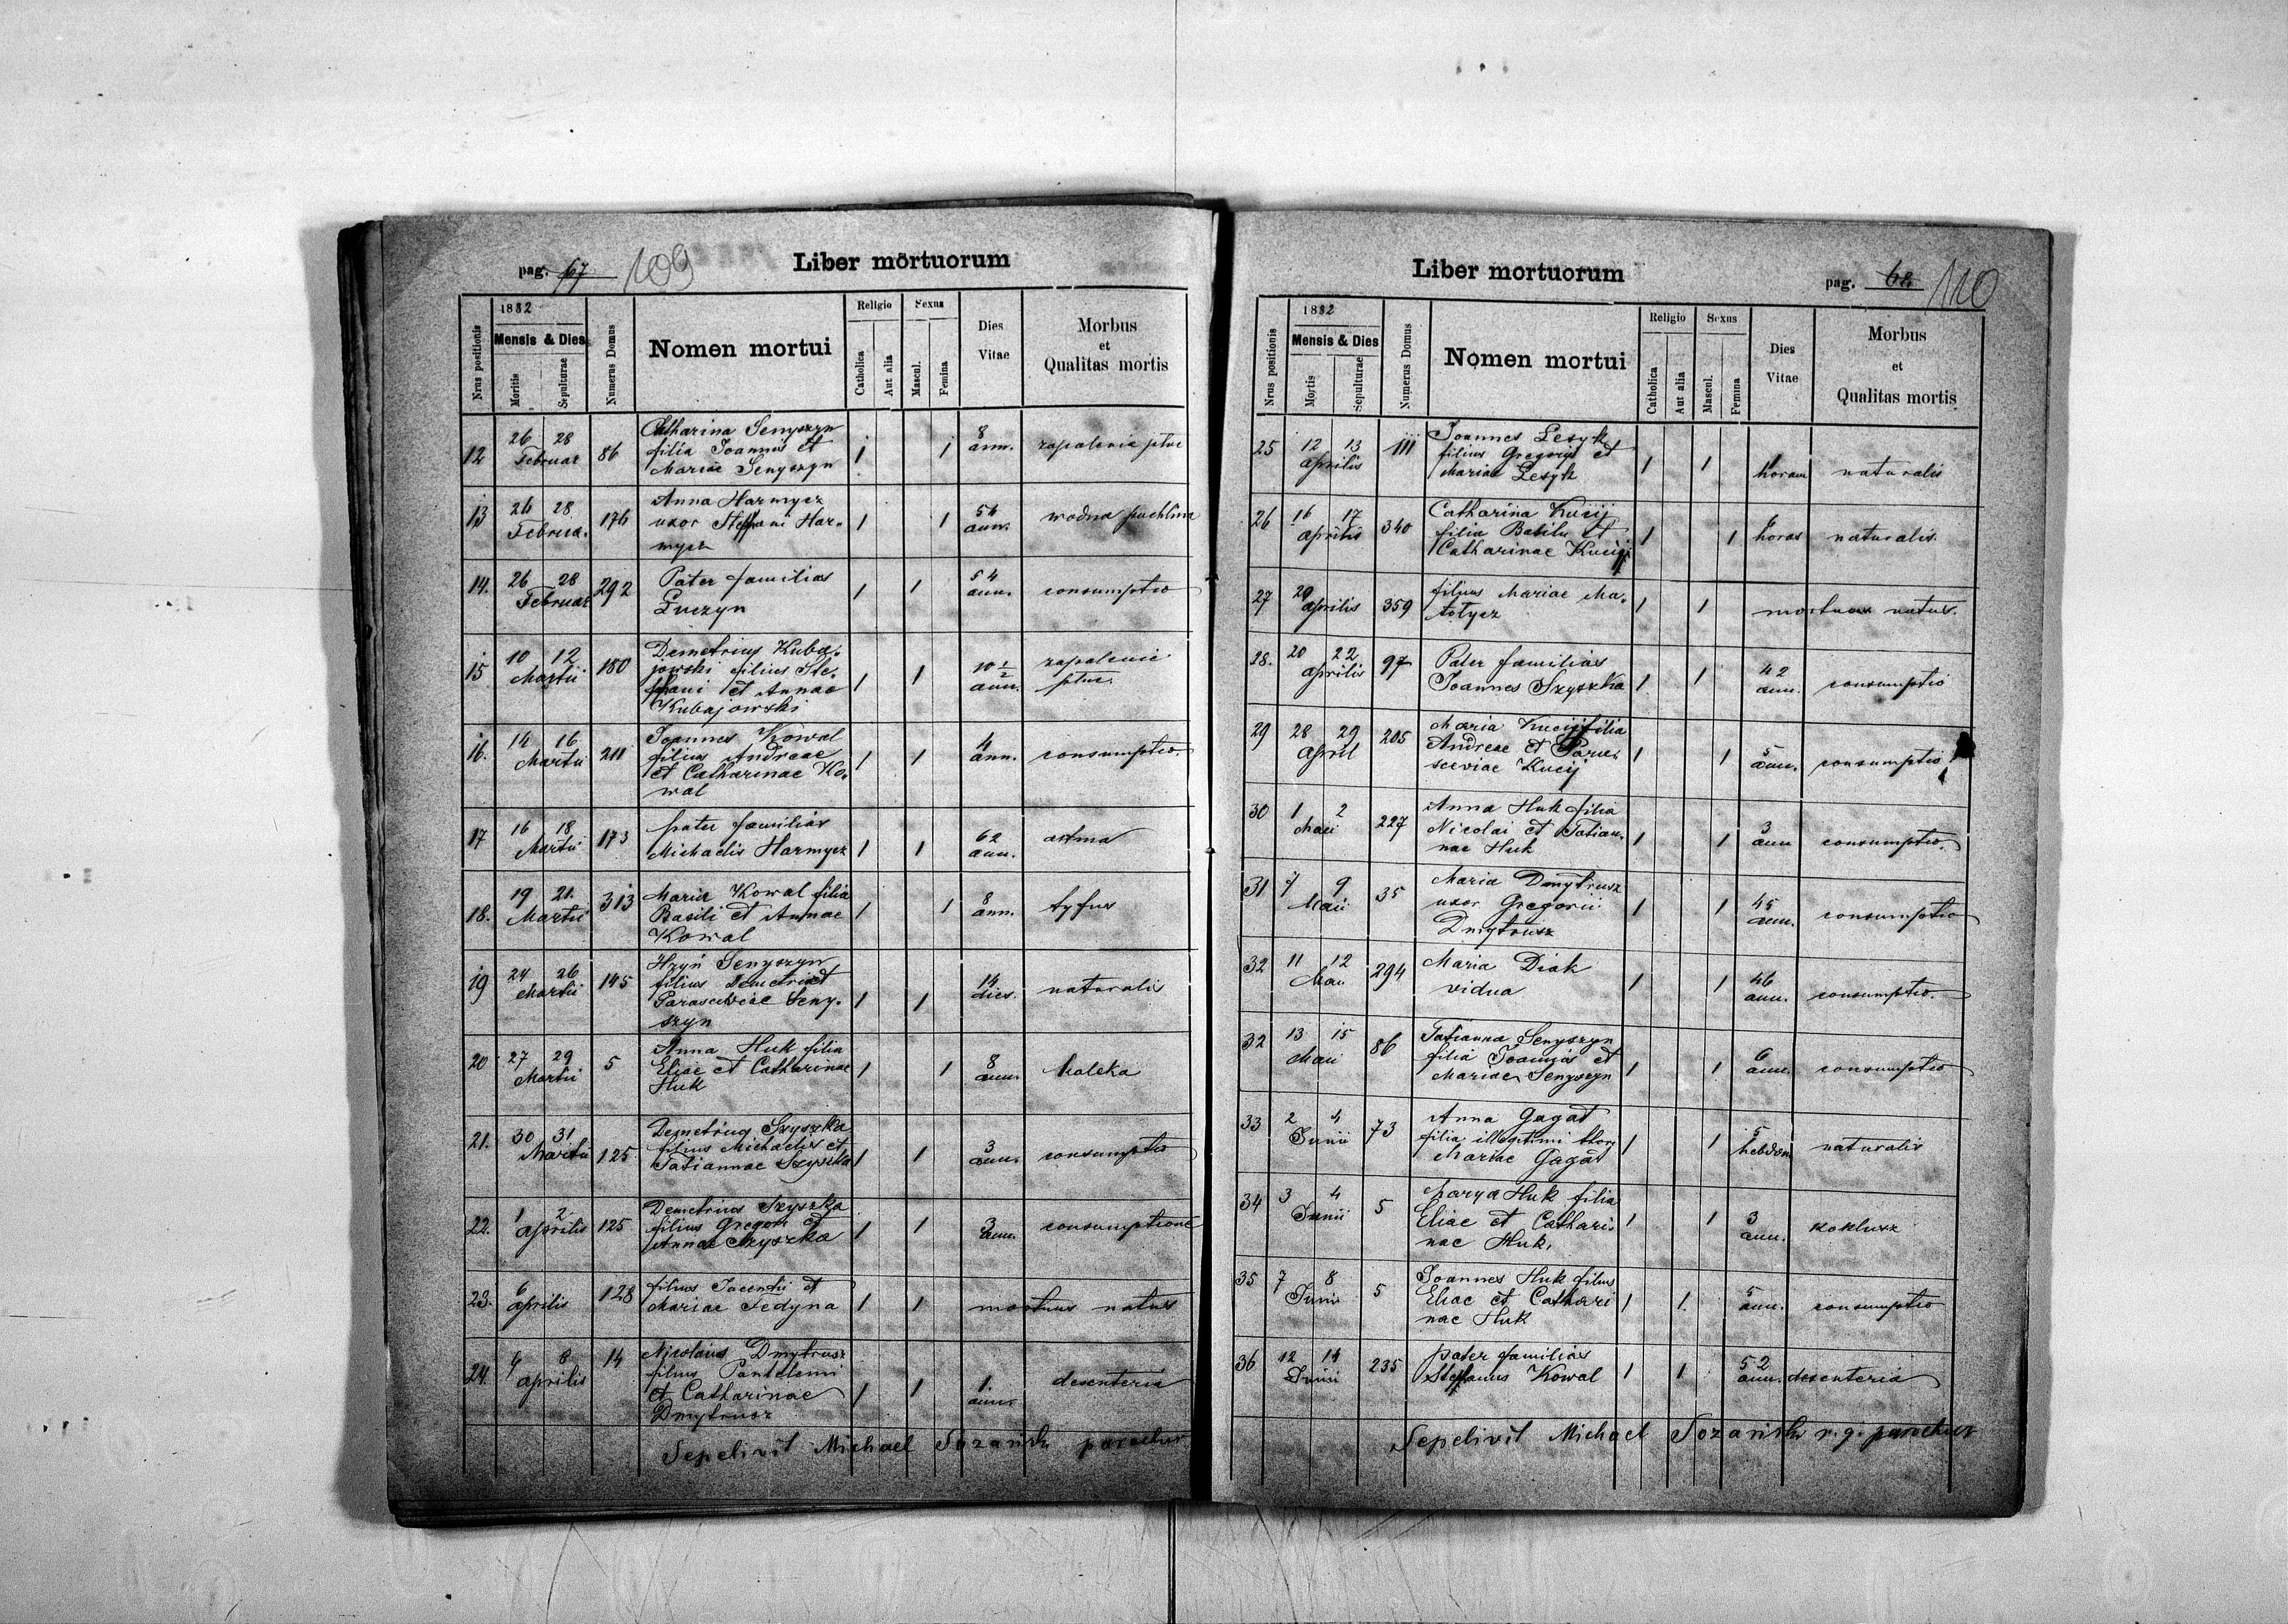 pag. 67 109
Liber mortuorum
Nrus positionis
1882
Mensis & Dies
Mortis
Sepulturae
Numerus Domus
Nomen mortui
Religio
Catholica
Aut alia
Sexus
Mascul.
Femina
Dies
Vitae
Morbus
et
Qualitas mortis
12 26 28 Februar 86
Catharina Senyszyn
filia Joannis et
Mariae Senyszyn
1 1 8 ann. zapalenie płuc
13 26 28 Februa. 176
Anna Harmycz
uxor Stephani Har-
mycz
1 1 54 ann. wodna puchlina
14. 26 28 Februar 292
Pater familias
Luczyn
1 1 54 ann. consumptio
15 10 12 Martii 180
Demetrius Kuba-
jowski filius Ste-
phani et Annae
Kubajowski
1 1 10 1/2 ann. zapalenie
płuc.
16. 14 16 Martii 211
Joannes Kowal
filius Andreae
et Catharinae Ko-
wal
1 1 4 ann. consumptio
17 16 18 Martii 173
pater familias
Michaelis Harmycz
1 1 62 ann. astma
18. 19 21. Martii 313
Maria Kowal filia
Basili et Annae
Kowal
1 1 8 ann. tyfus
19 24 26 Martii 145
Hryń Senyszyn
filius Demetri et
Parascewiae Seny-
szyn
1 1 14 dies. naturalis
20 27 29 Martii 5
Anna Huk filia
Eliae et Catharinae
Huk
1 1 8 ann. kaleka
21. 30 31 Martii 125
Demetrius Szyszka
filius Michaelis et
Tatiannae Szyszka
1 1 3 ann. consumptio
22. 1 2 Aprilis 125
Demetrius Szyszka
filius Gregori et
Annae Szyszka
1 1 3 ann. consumptione
23. 6 Aprilis 128
filius Jacentii et
Mariae Fedyna
1 1 mortuus natus
24. 8 Aprilis 14
Nicolaus Dmytrusz
filius Pantelemi
et Catharinae
Dmytrusz
1 1 1. ann. desenteria
Sepelivit Michael Sozański parochus
Liber mortuorum
pag. 68. 110
Nrus positionis
1882
Mensis & Dies
Mortis
Sepulturae
Numerus Domus
Nomen mortui
Religio
Catholica
Aut alia
Sexus
Mascul.
Femna
Dies
Vitae
Morbus
et
Qualitas mortis
25 12 13 Aprilis 111
Joannes Lesyk
filius Gregorii et
Mariae Lesyk
1 1 1 horam naturalis
26 16 17 Aprilis 340
Catharina Kucij
filia Basilii et
Catharinae Kucij
1 1 horas naturalis.
27 29 Aprilis 359
filius Mariae Ma-
tołycz
1 1 mortuus natus.
28. 20 22 Aprilis 97
Pater familias
Joannes Szyszka
1 1 42 ann. consumptio
29 28 29 April 205
Maria Kucij filia
Andreae et Para-
sceviae Kucij
1 1 5 ann. consumptio
30 1 2 Maii 227
Anna Huk filia
Nicolai et Tatian-
nae Huk
1 1 3 ann consumptio.
31 7 9 Maii 35
Maria Dmytrusz
uxor Gregorii
Dmytrusz
1 1 45 ann. consumptio
32 11 12 Maii 294
Maria Diak
vidua
1 1 46 ann. consumptio.
32 13 15 Maii 86
Tatianna Senyszyn
filia Joannis et
Mariae Senyszyn
1 1 6 ann. consumptio
33 2 4 Junii 73
Anna Gagat
filia illegitimi thori
Mariae Gagat
1 1 5 hebdom naturalis
34 3 4 Junii 5
Marya Huk filia
Eliae et Cathari-
nae Huk.
1 1 3 ann. koklusz
35 7 8 Junii 5
Joannes Huk filius
Eliae et Cathari
nae Huk
1 1. 5 ann. consumptio
36 12 14 Junii 235
pater familias
Stefanus Kowal
1 1 52 ann. desenteria
Sepelivit Michael Sozański r. g. parochus